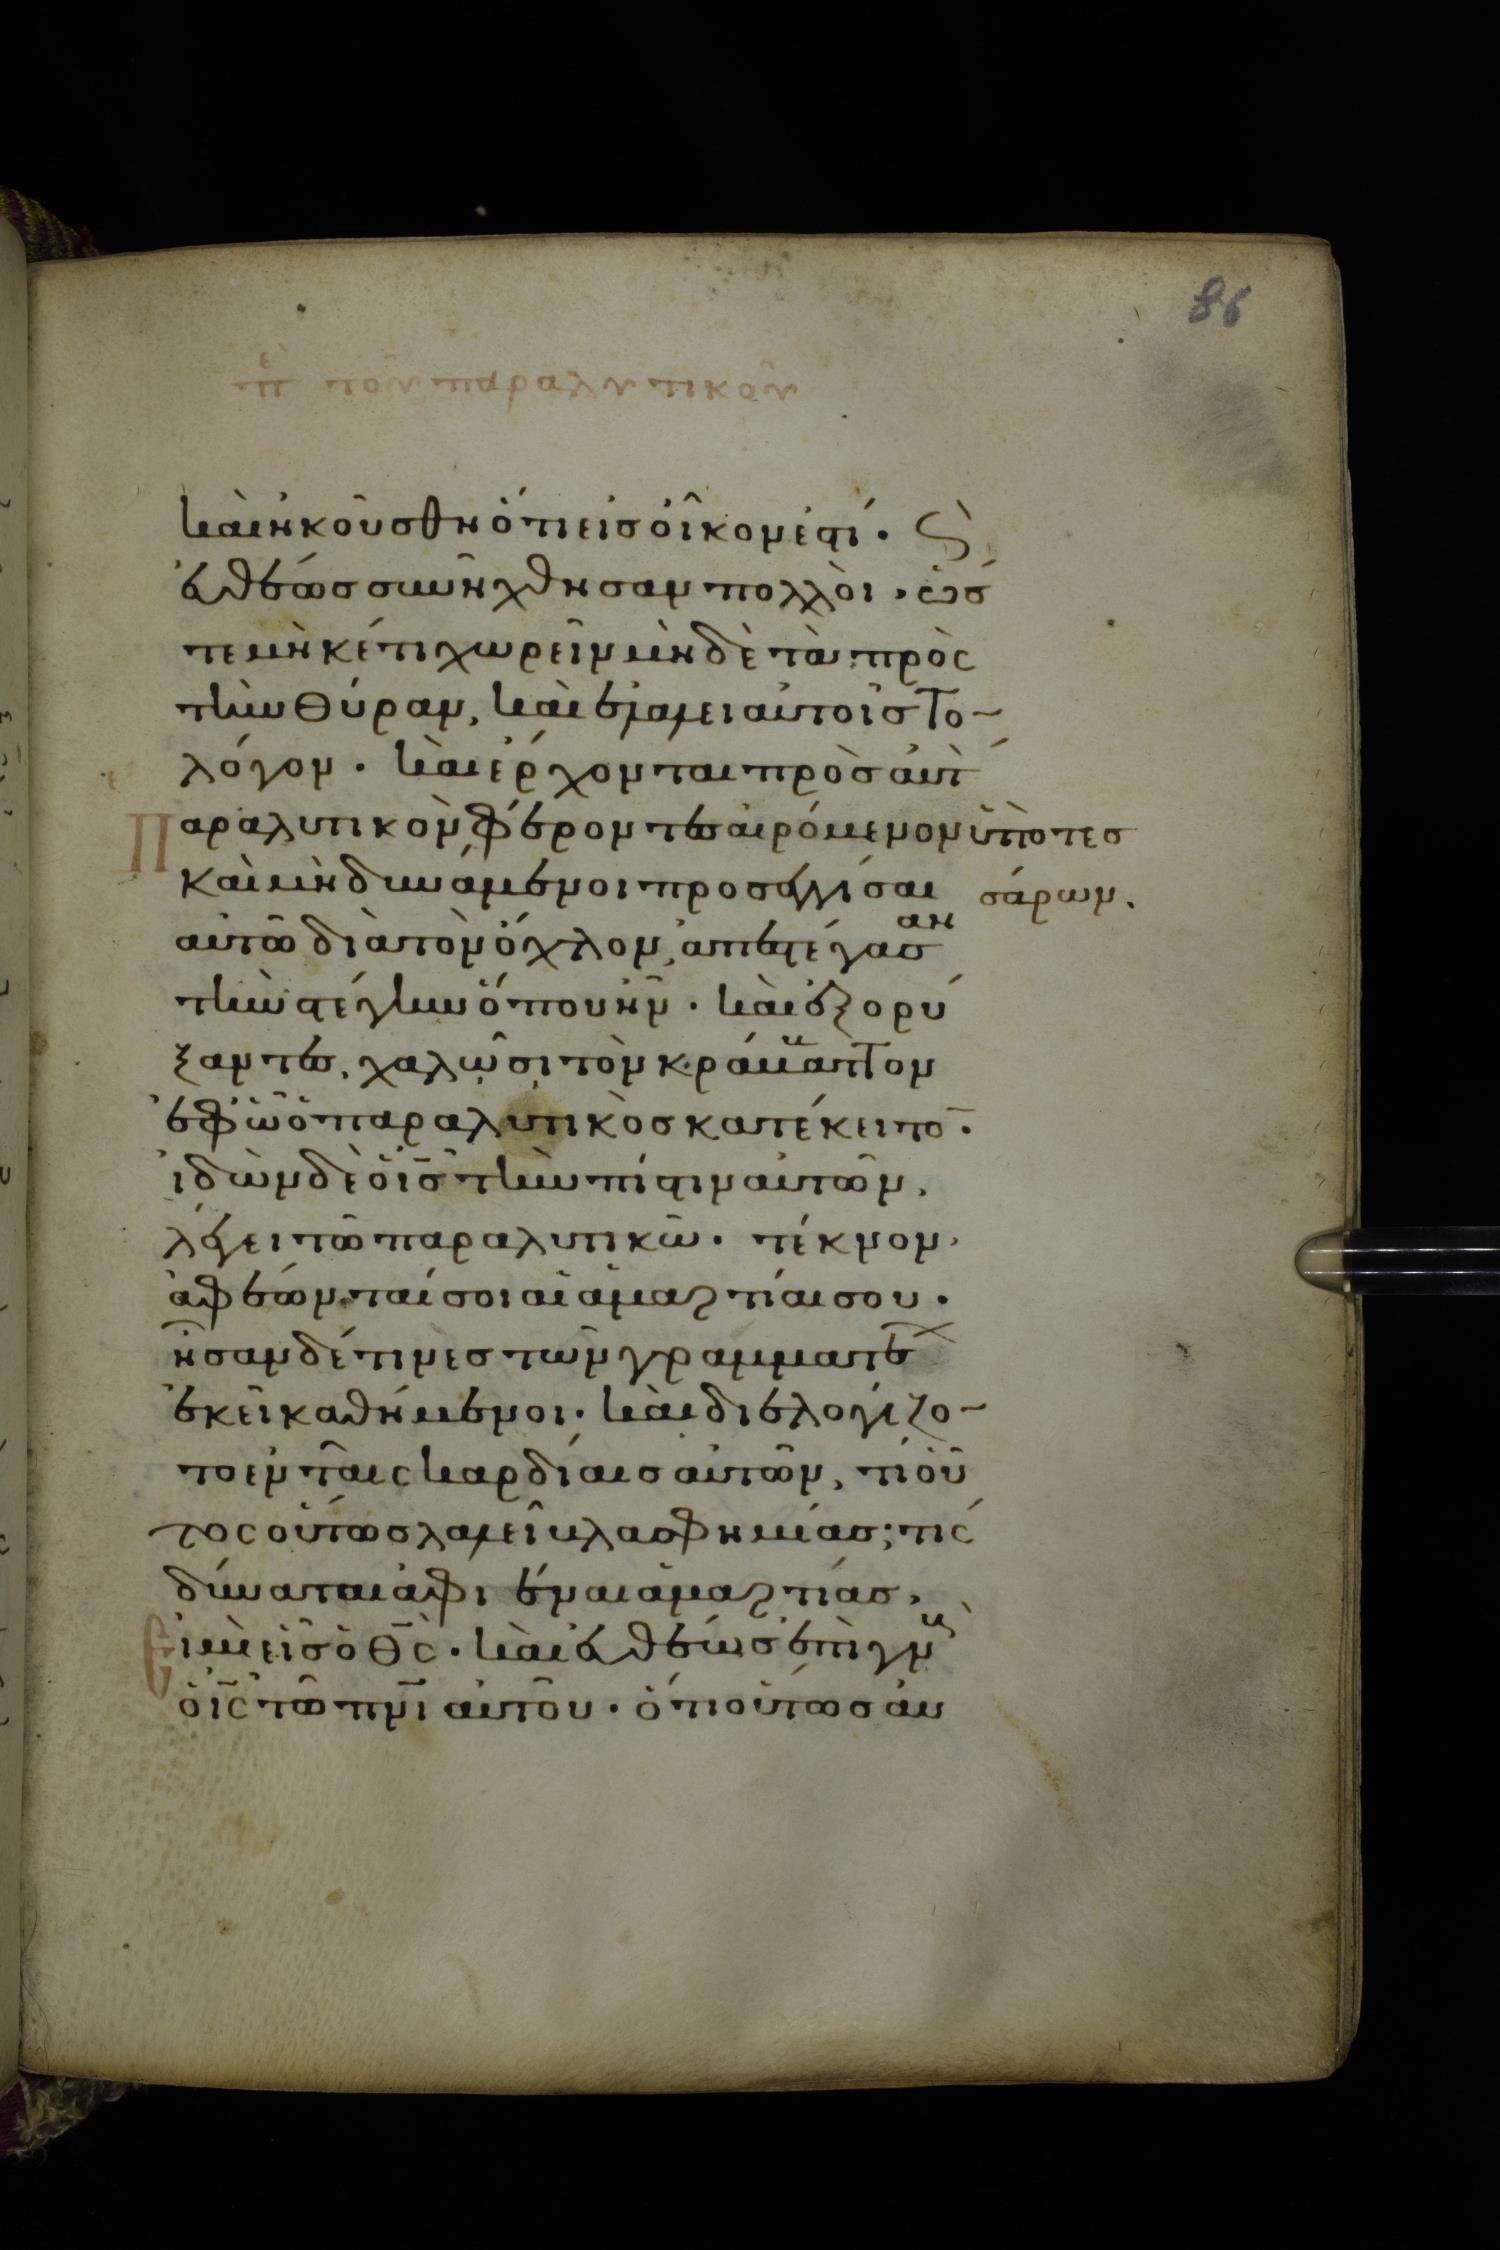 86
ὲ περὶ τοῦ παραλυτικοῦ
καὶ ἠκούσθη ὅτι εἰς οἶκόν ἐστί· Ϛ
εὐθέως συνήχθησαν πολλοὶ· ὥσ
τε μηκέτι χωρεῖν μηδὲ τὰ πρὸς
τὴν θύραν, καὶ ἐλάλει αὐτοῖς το
λόγον· καὶ ἔρχονται πρὸς αὐτ
Παραλυτικὸν φέροντες αἰρόμενον ὑπὸ τεσ
καὶ μὴ δυνάμενοι προσεγγίσαι σάρων.
αὐτῶ διὰ τὸν ὄχλον, ἀπεστέγασαν
τὴν στέγην ὅπου ἦν· καὶ ἐξορύ
ξαντες, χαλῶσι τὸν κράββαττον
ἐφ' ὧ ὁ παραλυτικὸς κατέκειτο·
ἰδὼν δὲ ὁ ις τὴν πίστιν αὐτῶν,
λέγει τῶ παραλυτικῶ· τέκνον,
ἀφέωνταί σοι αἱ ἁμαρτίαι σου·
ἦσαν δέ τινες τῶν γραμματε
ἐκεῖ καθήμενοι· καὶ διελογίζο
το ἐν ταῖς καρδίαις αὐτῶν, τί οὗ
τος οὕτως λαλεῖ βλασφημίας; τίς
δύναται ἀφιέναι ἁμαρτίας,
Εἰ μὴ εἷς ὁ θς· καὶ εὐθέως ἐπιγν
ὁ ις τῶ πνι αὐτοῦ· ὅτι οὕτως αὐ